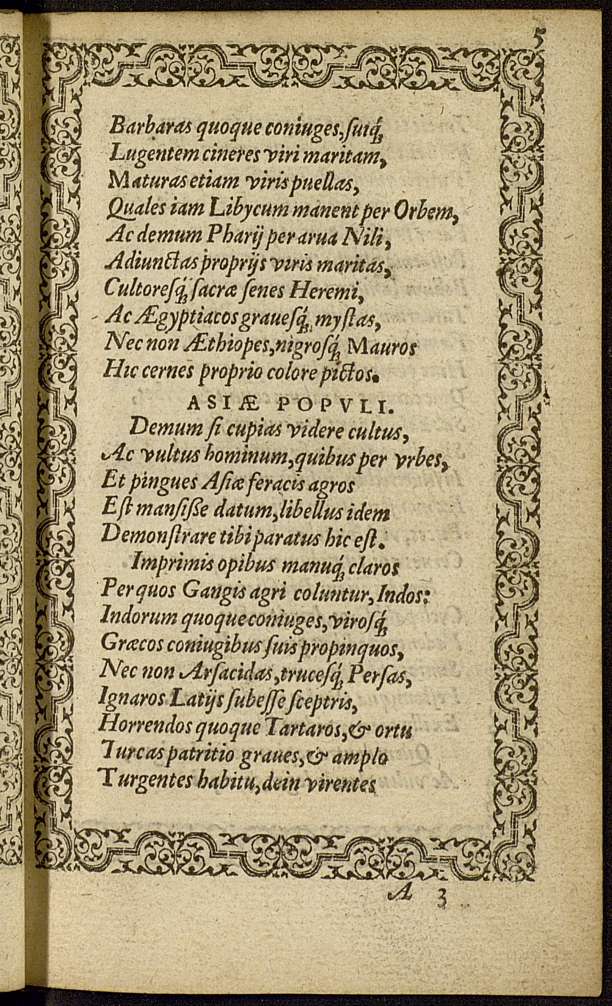 5
Barbaras quoque coniuges, ſuiq́;
Lugentem cineres viri maritam,
Maturas etiam viris puellas,
Quales iam Libycum manent per Orbem,
Ac demum Pharij per arua Nili,
Adiunctas proprijs viris maritas,
Cultoreſq́; ſacræ ſenes Heremi,
Ac Ægyptiacos graueſq́; myſtas,
Nec non Æthiopes, nigroſq́; Mauros
Hic cernes proprio colore pictos.
ASIÆ POPVLI.
Demum ſi cupias videre cultus,
Ac vultus hominum, quibus per vrbes,
Et pingues Aſiæ feracis agros
Eſt manſiſſe datum, libellus idem
Demonſtrare tibi paratus hic eſt.
Imprimis opibus manuq́; claros
Per quos Gangis agri coluntur, Indos:
Indorum quoque coniuges, viroſq́;
Græcos coniugibus ſuis propinquos,
Nec non Arſacidas, truceſq́; Perſas,
Ignaros Latijs ſubeſſe ſceptris,
Horrendos quoque Tartaros, & ortu
Turcas patritio graues, & amplo
Turgentes habitu, dein virentes
A 3